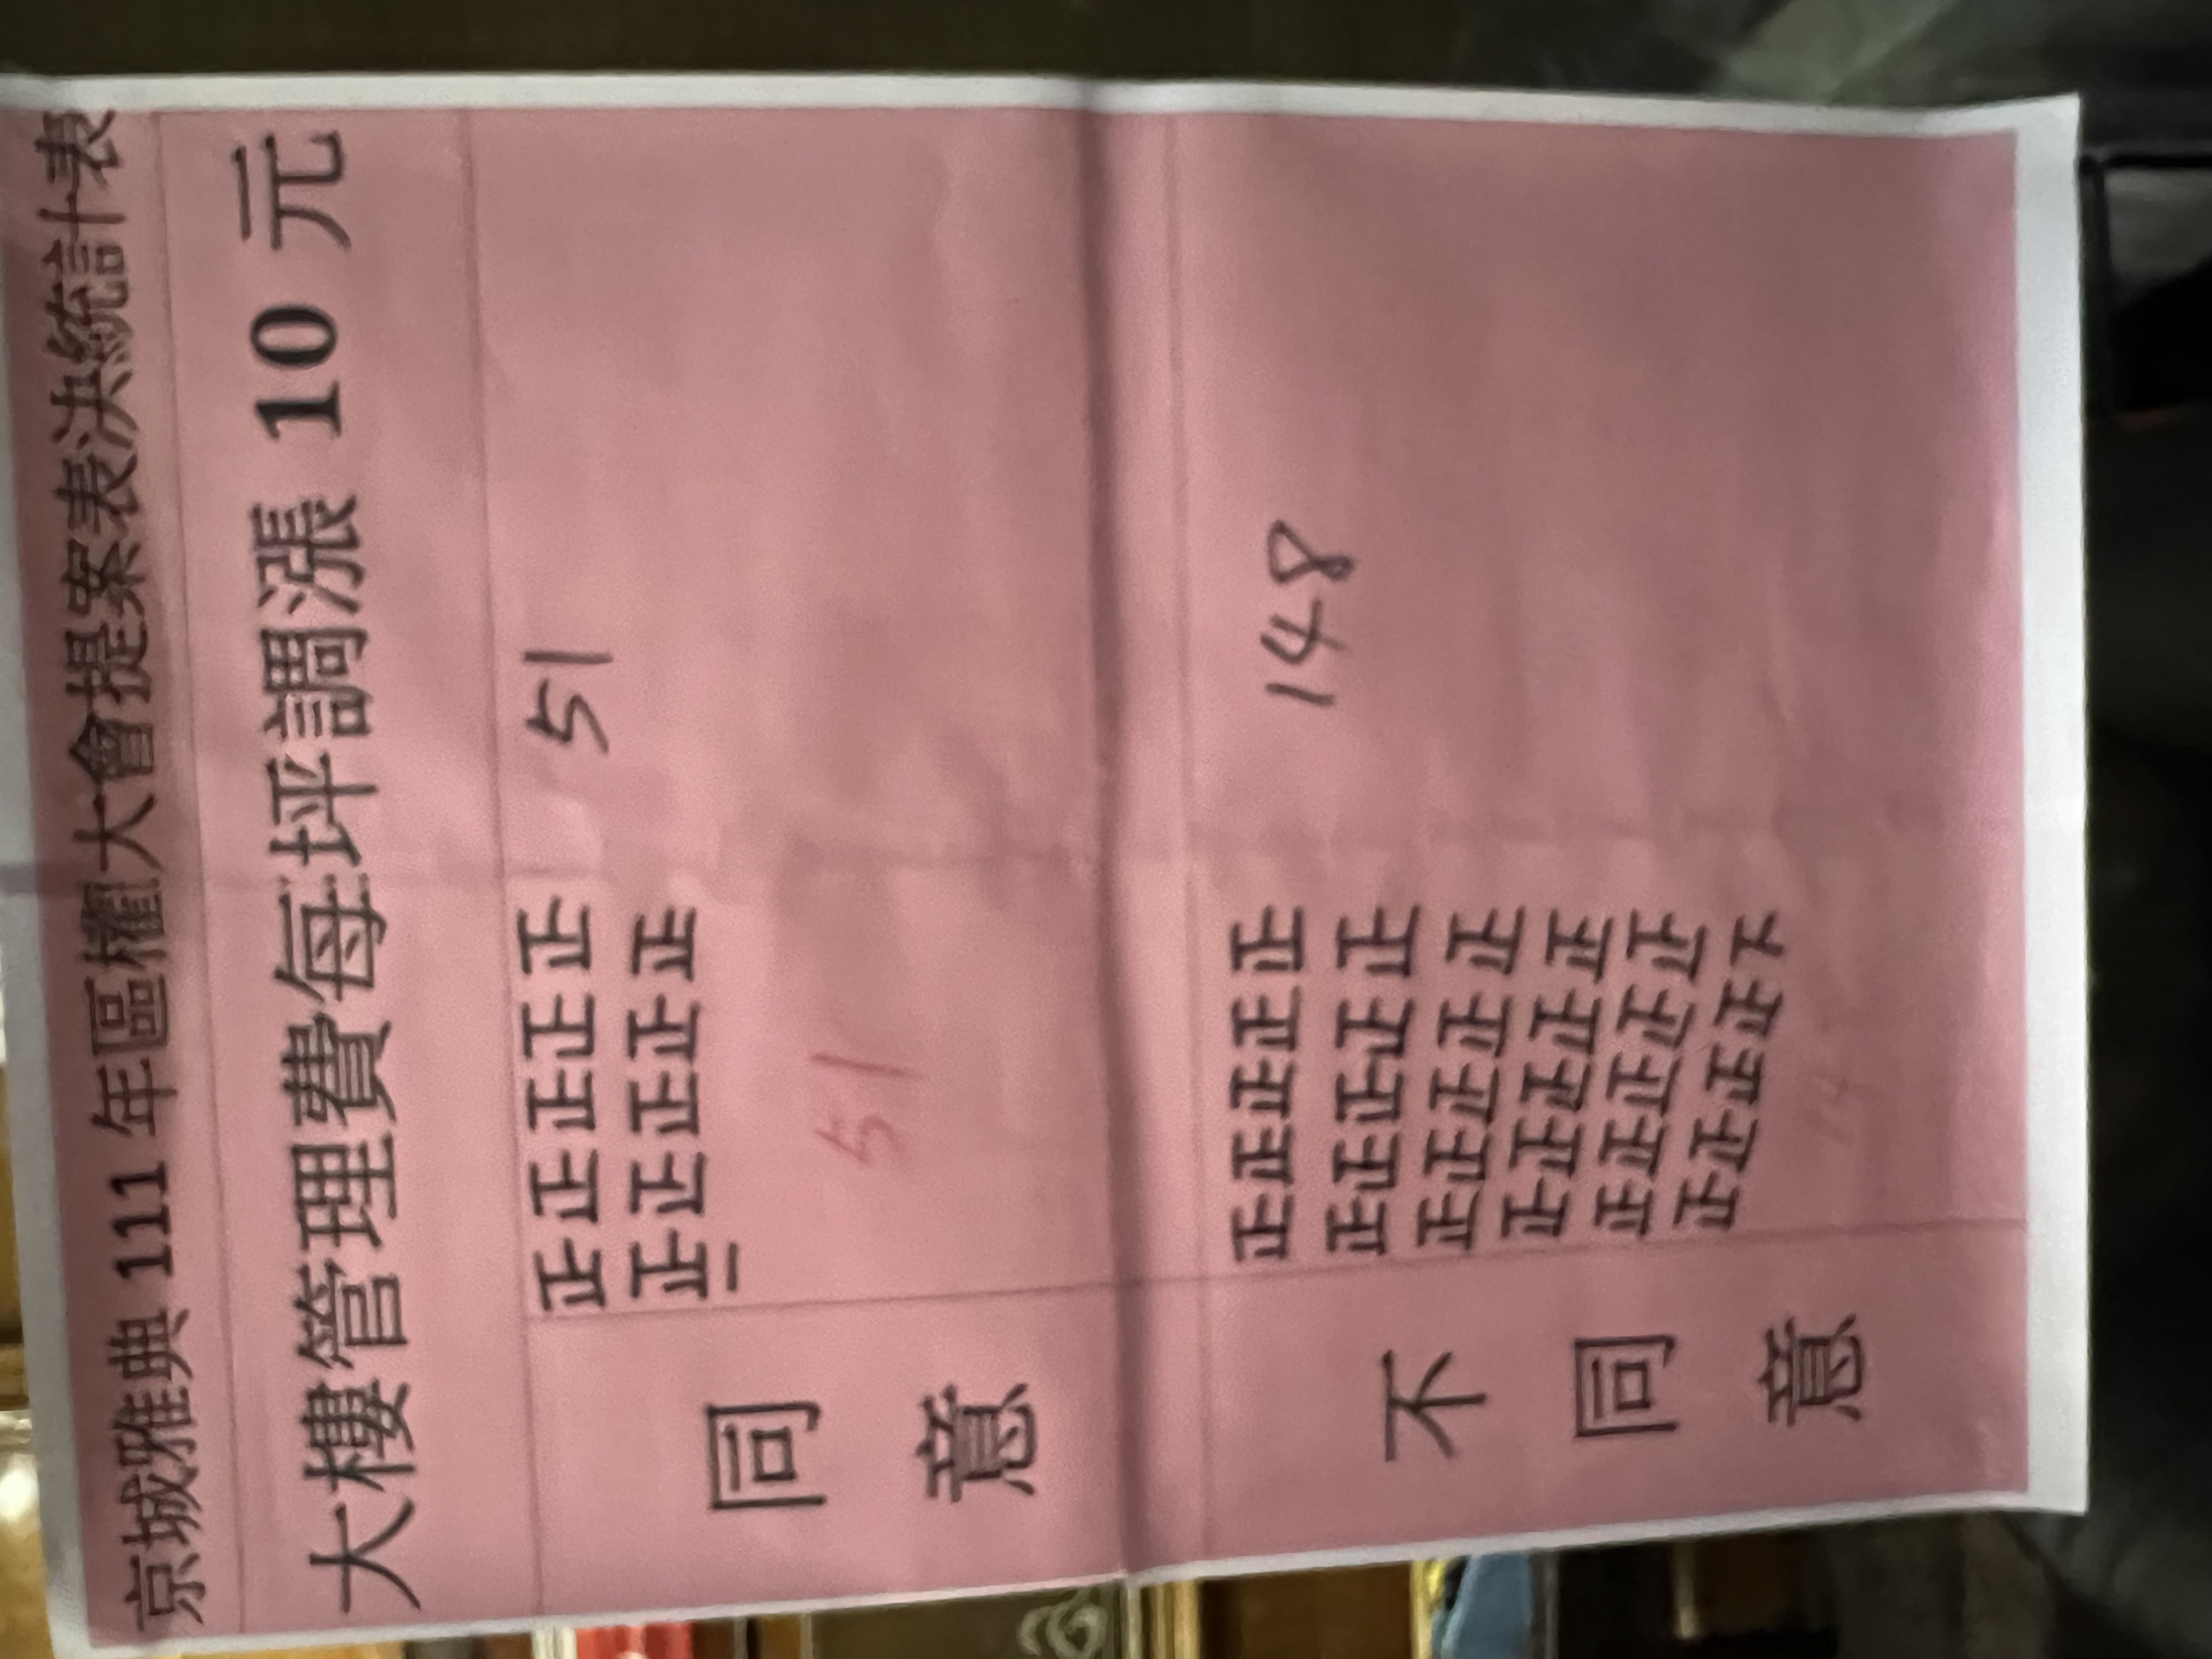 京城雅典 111 年區權大會提案表決統計表
大樓管理費每坪調漲 10 元
同意
正正正正正 51
正正正正正
一
51
不同意
正正正正正 148
正正正正正
正正正正正
正正正正正
正正正正正
正正正正下